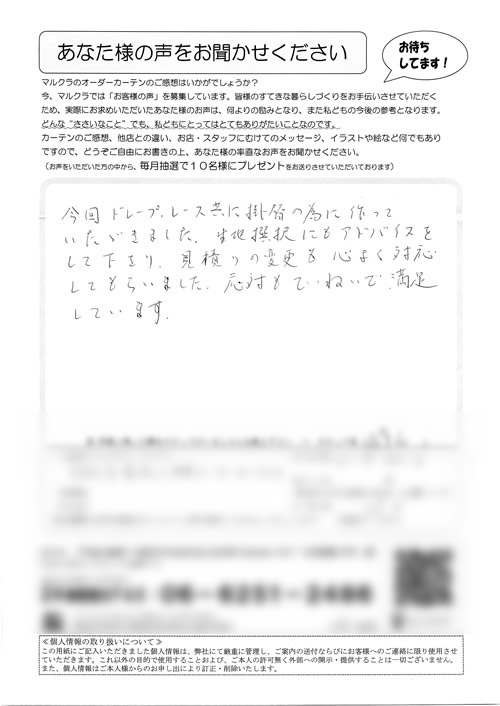 あなた様の声をお聞かせください
お待ち
してます!
マルクラのオーダーカーテンのご感想はいかがでしょうか?
今、マルクラでは「お客様の声」を募集しています。皆様のすてきな暮らしづくりをお手伝いさせていただく
ため、実際にお求めいただいたあなた様のお声は、何よりの励みとなり、また私どもの今後の参考となります。
どんな“ささいなこと”でも、私どもにとってはとてもありがたいことなのです。
カーテンのご感想、他店との違い、お店・スタッフにむけてのメッセージ、イラストや絵など何でもあり
ですので、どうぞご自由にお書きの上、あなた様の率直なお声をお聞かせください。
(お声をいただいた方の中から、毎月抽選で10名様にプレゼントをお送りさせていただいております)
今回ドレープ、レース共に掛替の為に作って
いただきました。生地撰択にもアドバイスを
して下さり、見積りの変更も心よく対応
してもらいました。応対もていねいで満足
しています。
≪個人情報の取り扱いについて≫
この用紙にご記入いただきました個人情報は、弊社にて厳重に管理し、ご案内の送付ならびにお客様へのご連絡に限り使用させ
ていただきます。これ以外の目的で使用することおよび、ご本人の許可無く外部への開示・提供することは一切ございません。
また、個人情報はご本人様からのお申し出により訂正・削除いたします。